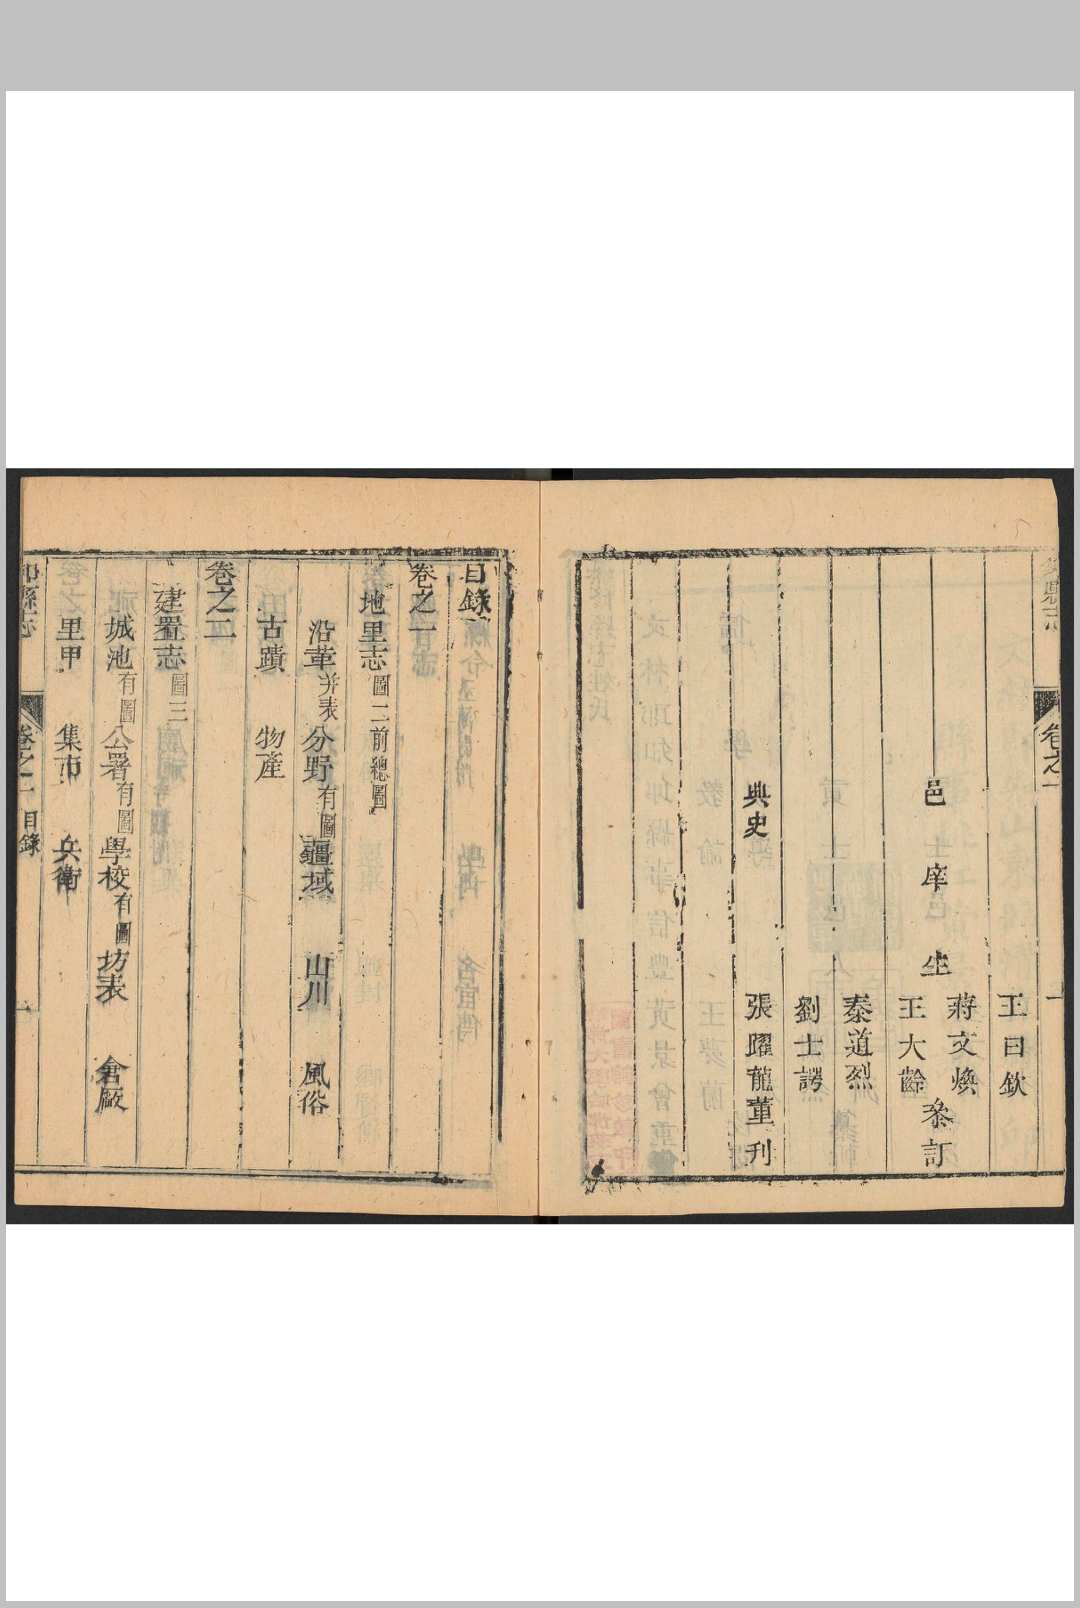 卷之一
一
王日欽
蔣文煥
邑 庠 生 王大齡 叅訂
秦道烈
劉士諤
典史 張躍龍董刊
目錄
卷之一
地里志圖二前總圖
沿革并表 分野有圖 疆域 山川 風俗
古蹟 物產
卷之二
建置志圖三
城池有圖 公署有圖 學校有圖 坊表 倉廒
里甲 集市 兵衛
縣志
卷之一 目錄
一